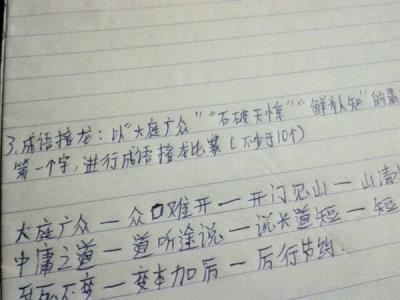 3.成语接龙:以"大庭广众""石破天惊""鲜有人知"的最
第一个字,进行成语接龙比赛(不少于10个)
大庭广众—众口难开—开门见山—山清
中庸之道—道听途说—说长道短—短
不变—变本加厉—厉行节约.